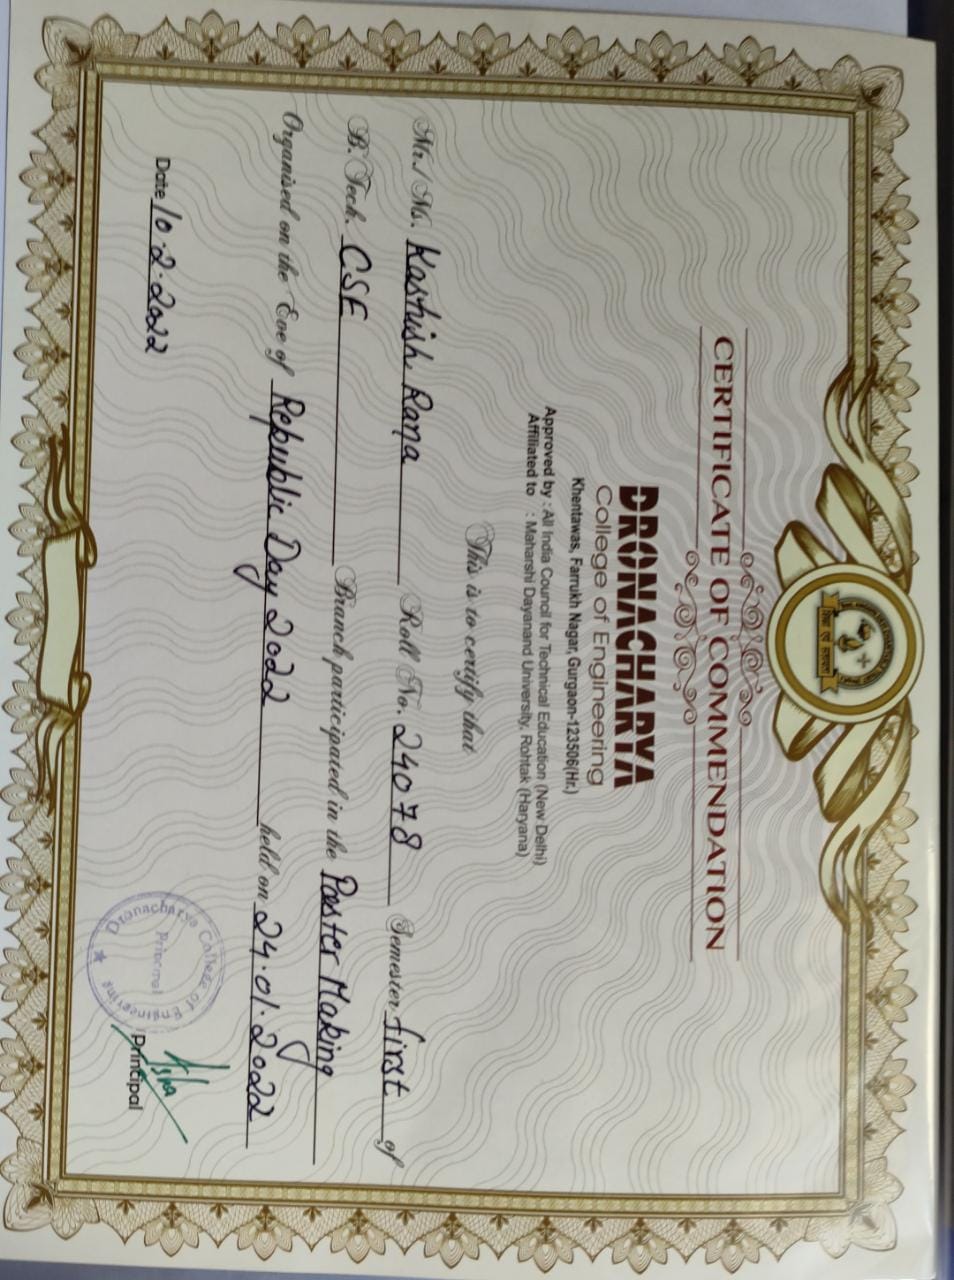 CERTIFICATE OF COMMENDATION
DRONACHARYA
College of Engineering
Khentawas, Farrukh Nagar, Gurgaon-123506(Hr.)
Approved by : All India Council for Technical Education (New Delhi)
Affiliated to : Maharshi Dayanand University, Rohtak (Haryana)
This is to certify that
Mr./ Ms. Kashish Rana Roll No. 24078 Semester first of
B. Tech. CSE Branch participated in the Poster Making
Organised on the Eve of Republic Day 2022 held on 24.01.2022
Date 10.2.2022
Dronacharya College of Engineering
Principal
Principal